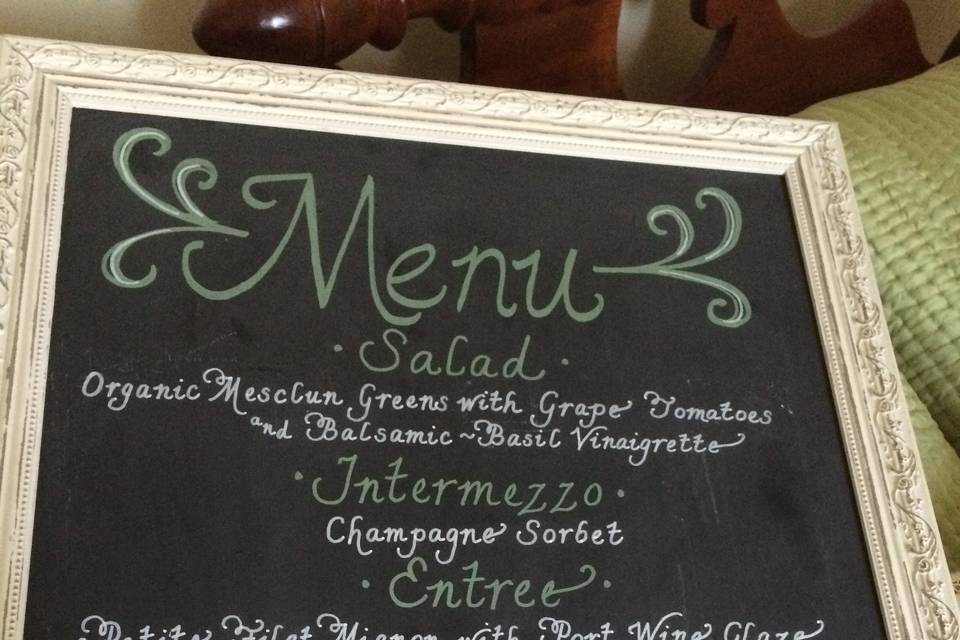 Menu
· Salad ·
Organic Mesclun Greens with Grape Tomatoes
and Balsamic ~ Basil Vinaigrette
· Intermezzo ·
Champagne Sorbet
· Entree ·
Petite Filet Mignon with Port Wine Glaze